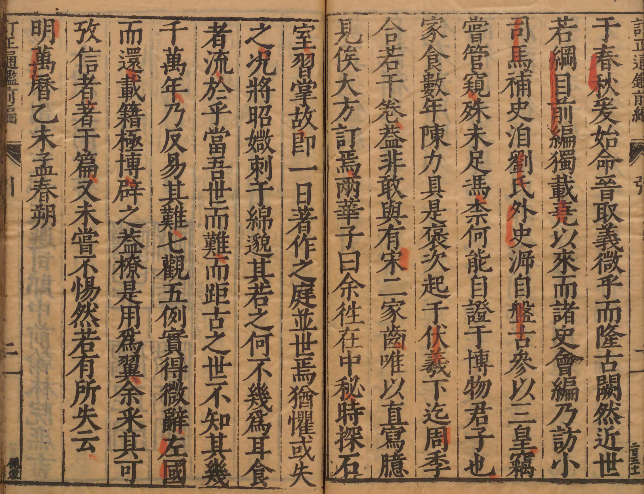 于春秋爰始命晉取義微乎而隆古闕然近世
若綱目前編獨載堯以來而諸史會編乃訪小
司馬補史洎劉氏外史泝自盤古參以三皇竊
嘗管窺殊未足馮柰何能自證于博物君子也
家食數年陳力具是褒次起于伏羲下迄周季
合若干卷葢非取與有宋二家齒唯以直寫臆
見俟大方訂焉兩華子曰余徃在中秘時探石
室習掌故卽一日著作之庭並世焉猶懼或失
之况將昭媺刺于綿邈其若之何不幾爲耳食
者流於乎當吾世而難而距古之世不知其幾
千萬年乃反易其難七觀五例實得微辭左國
而還載籍極博辟之葢橑是用爲翼余采其可
攷信者著于篇又未嘗不惕然若有所失云
明萬曆乙未孟春朔
訂正通鑑前編
二